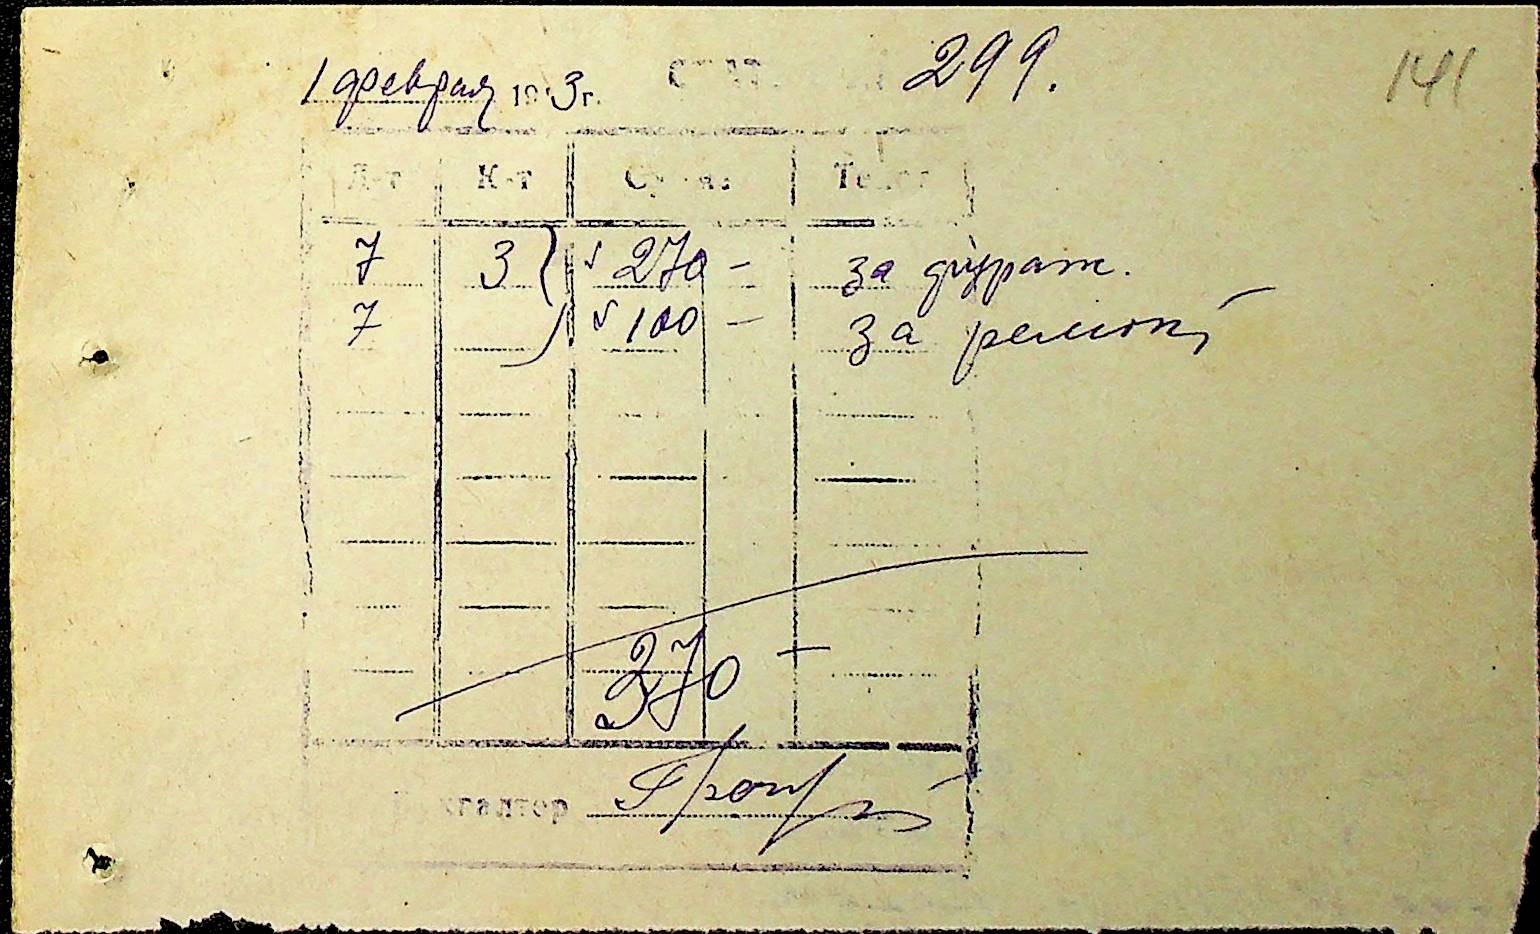 1 февраля 19 3 г. 299. 141
Д-т К-т Сумма Текст
7 3 270 - за фураж.
7 100 - за ремонт
370 -
Бухгалтер